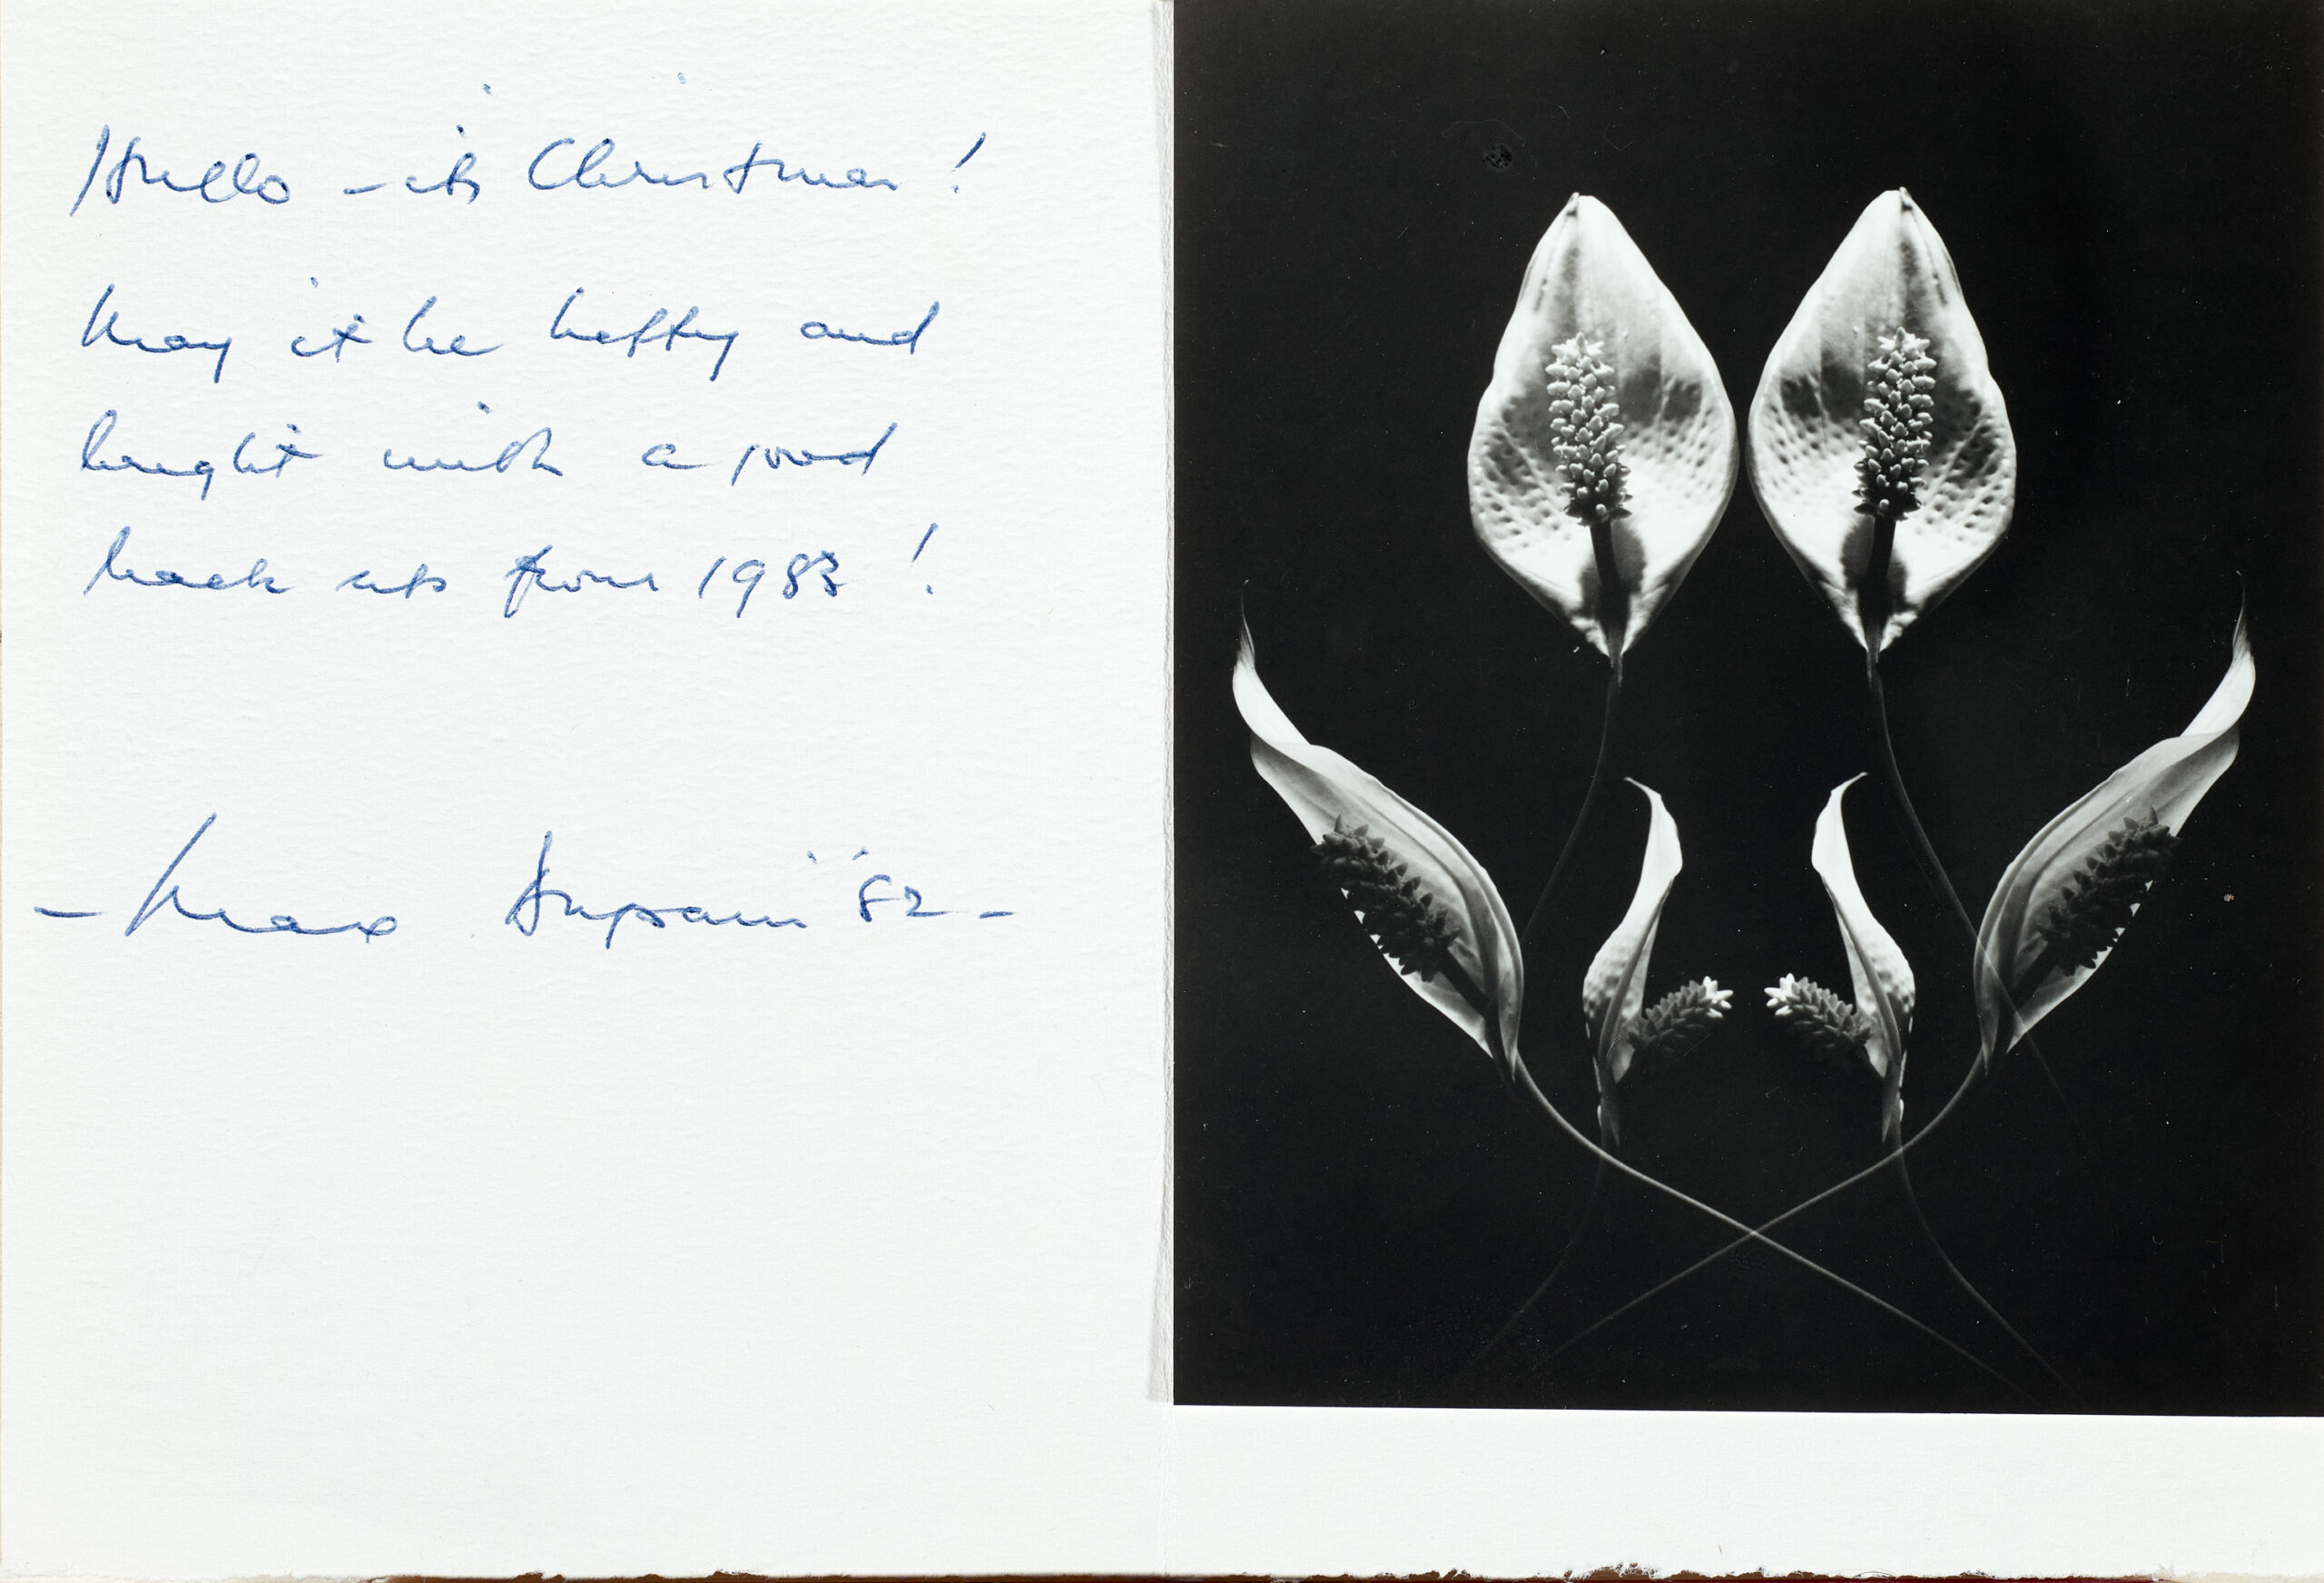 Hullo - its Christmas!
May it be happy and
bright with a good
back up from 1983!
- Max Dupain '82 -